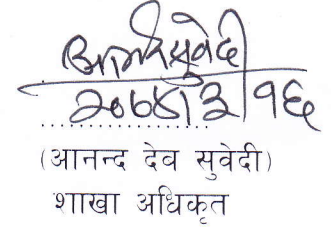 २०७४।३।१६
(आनन्द देव सुवेदी)
शाखा अधिकृत